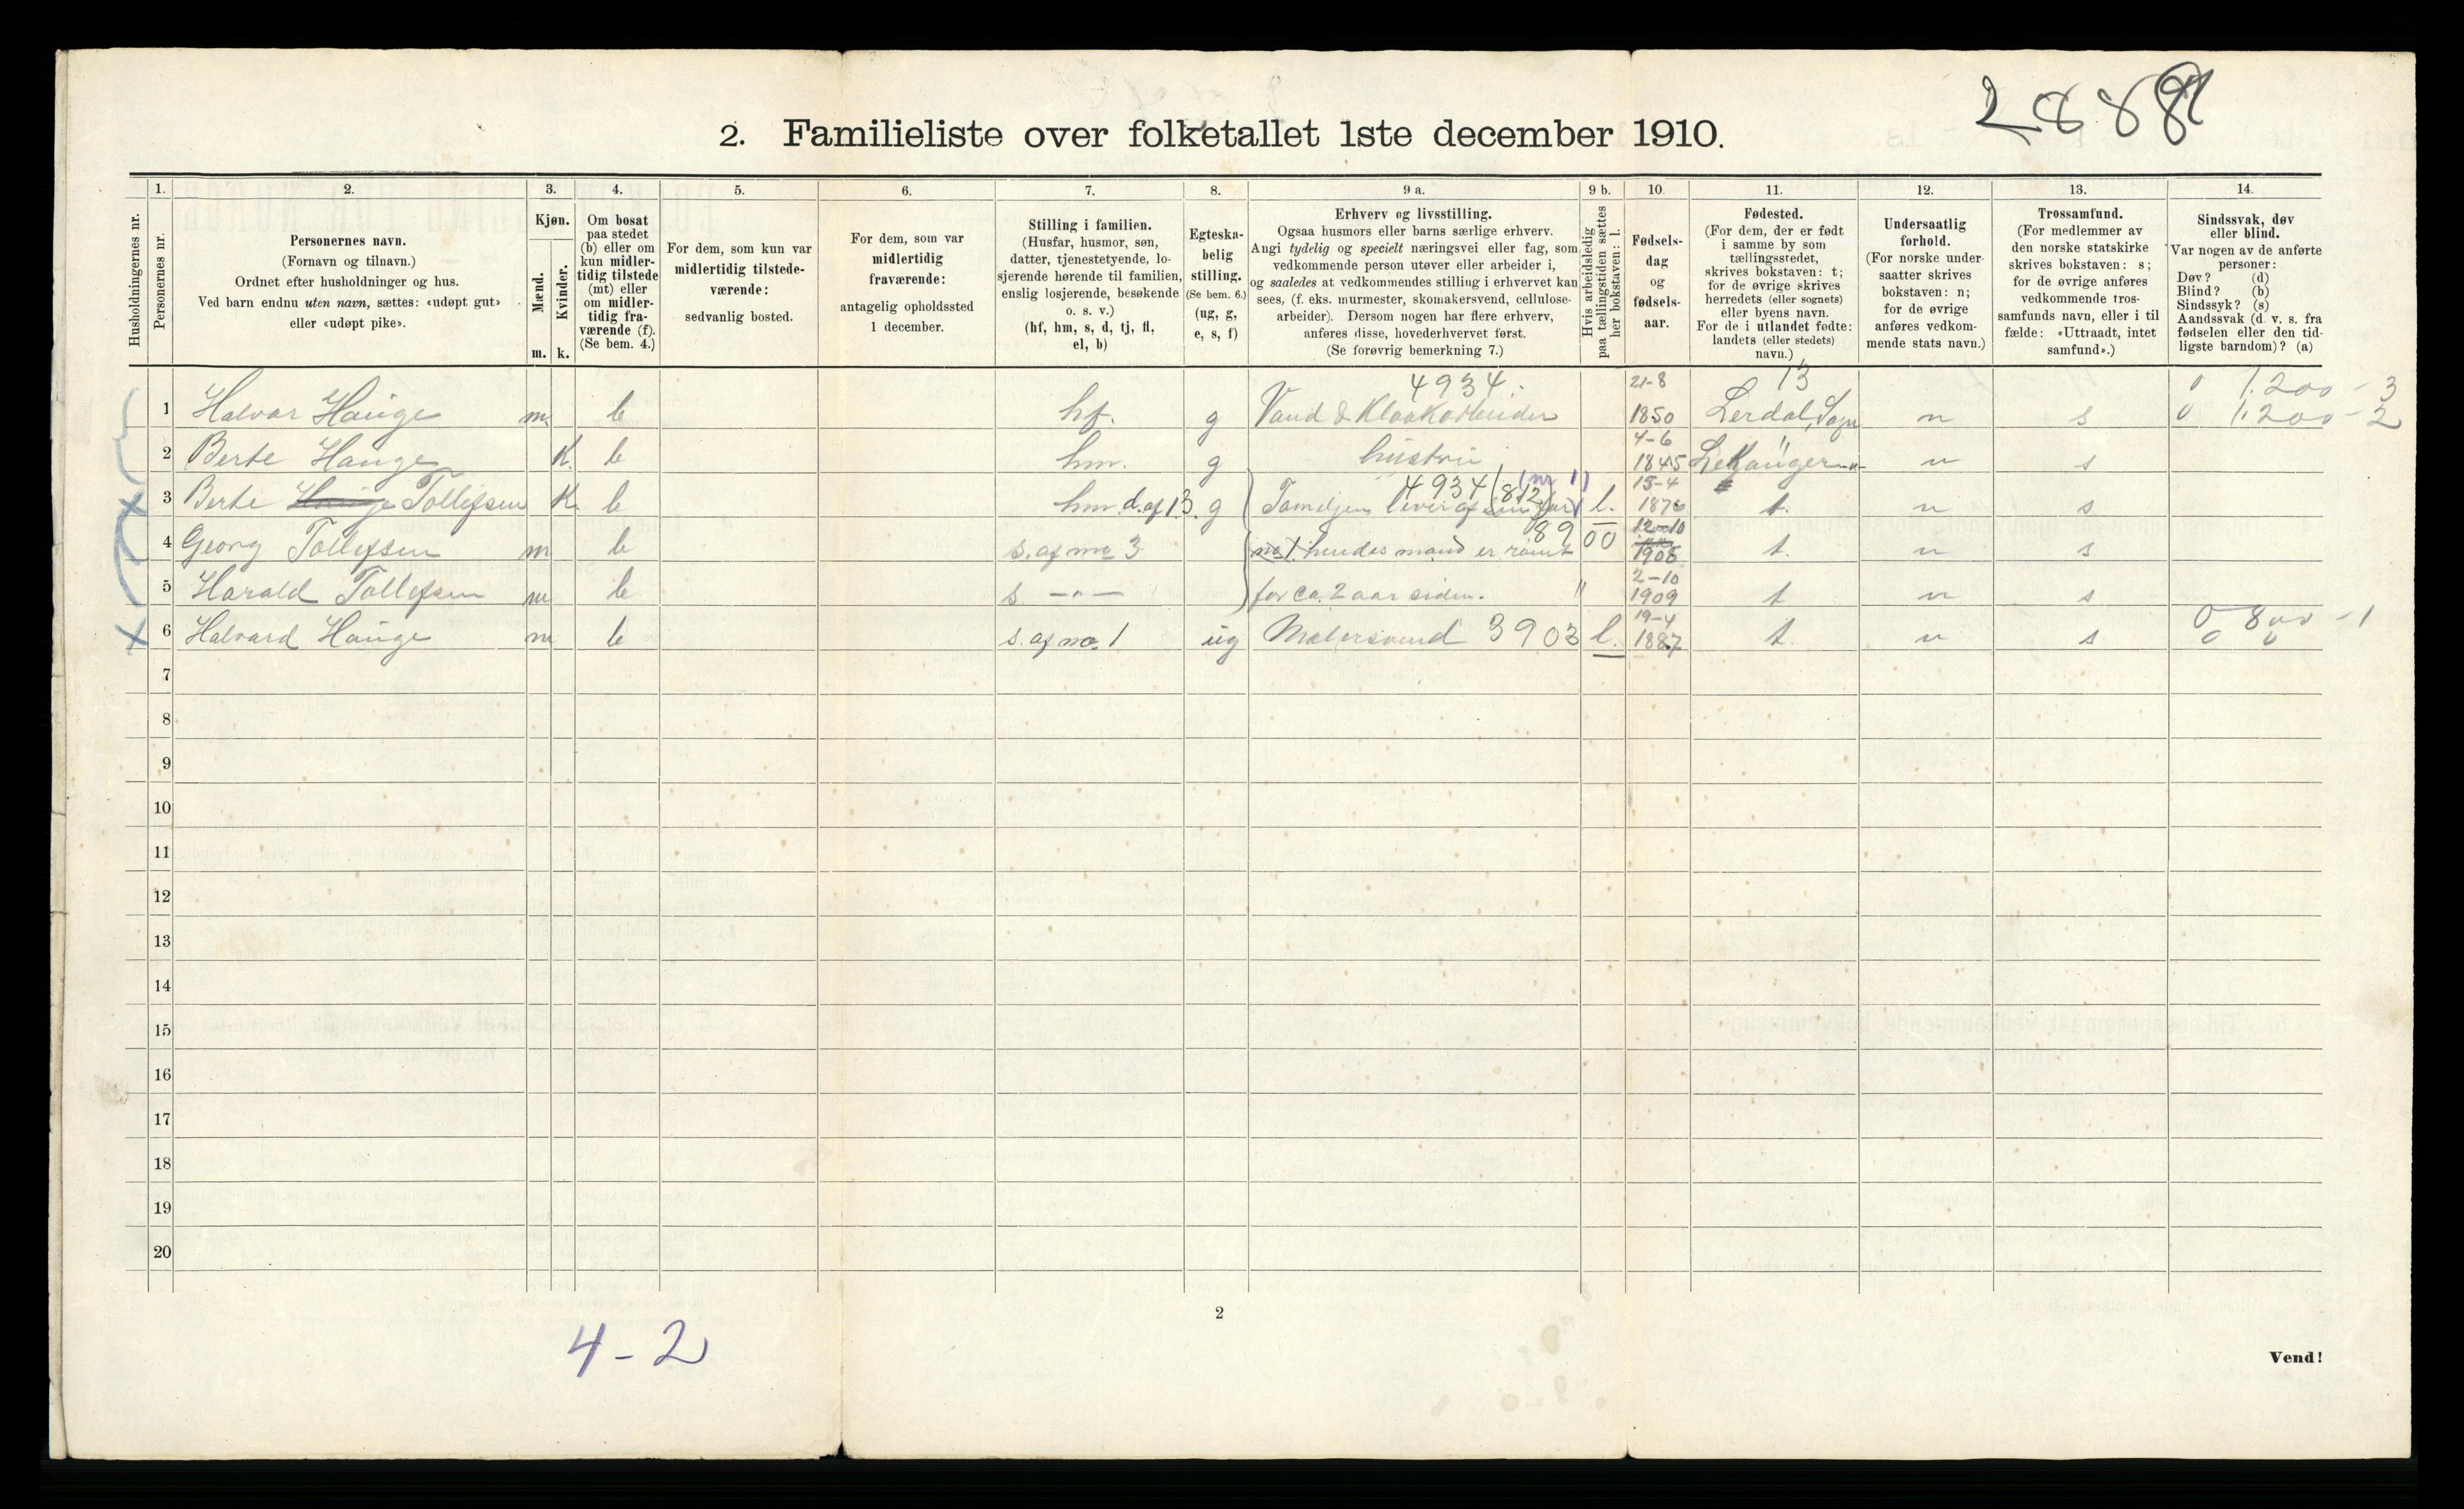 2888
2. Familieliste over folketallet 1ste december 1910.
1. 2. 3. 4. 5. 6. 7. 8. 9 a. 9 b. 10. 11. 12. 13. 14.
Husholdningernes nr.
Personernes nr.
Personernes navn.
(Fornavn og tilnavn.)
Ordnet efter husholdninger og hus.
Ved barn endnu uten navn, sættes: «udøpt gut»
eller «udøpt pike».
Kjøn.
Mænd.
Kvinder.
m. k.
Om bosat
paa stedet
(b) eller om
kun midler-
tidig tilstede
(mt) eller
om midler-
tidig fra-
værende (f).
(Se bem. 4.)
For dem, som kun var
midlertidig tilstede-
værende:
sedvanlig bosted.
For dem, som var
midlertidig
fraværende:
antagelig opholdssted
1 december.
Stilling i familien.
(Husfar, husmor, søn,
datter, tjenestetyende, lo-
sjerende hørende til familien,
enslig losjerende, besøkende
o. s. v.)
(hf, hm, s, d, tj, fl,
el, b)
Egteska-
belig
stilling.
(Se bem. 6.)
(ug, g,
e, s, f)
Erhverv og livsstilling.
Ogsaa husmors eller barns særlige erhverv.
Angi tydelig og specielt næringsvei eller fag, som
vedkommende person utøver eller arbeider i,
og saaledes at vedkommendes stilling i erhvervet kan
sees, (f. eks. murmester, skomakersvend, cellulose-
arbeider). Dersom nogen har flere erhverv,
anføres disse, hovederhvervet først.
(Se forøvrig bemerkning 7.)
Hvis arbeidsledig
paa tællingstiden sættes
her bokstaven: l.
Fødsels-
dag
og
fødsels-
aar.
Fødested.
(For dem, der er født
i samme by som
tællingsstedet,
skrives bokstaven: t;
for de øvrige skrives
herredets (eller sognets)
eller byens navn.
For de i utlandet fødte:
landets (eller stedets)
navn.)
Undersaatlig
forhold.
(For norske under-
saatter skrives
bokstaven: n;
for de øvrige
anføres vedkom-
mende stats navn.)
Trossamfund.
(For medlemmer av
den norske statskirke
skrives bokstaven: s;
for de øvrige anføres
vedkommende tros-
samfunds navn, eller i til
fælde: «Uttraadt, intet
samfund».)
Sindssvak, døv
eller blind.
Var nogen av de anførte
personer:
Døv? (d)
Blind? (b)
Sindssyk? (s)
Aandssvak (d. v. s. fra
fødselen eller den tid-
ligste barndom)? (a)
4934. 21-8 13 0 1.200 - 3
1 Halvor Hauge m b hf. g Vand & Kloakarbeider 1850 Lerdal, Sogn n s 0 1.200 - 2
4-6
2 Berte Hauge K. b hm. g hustru 1845 Lekanger n s
4934 (812) (nr 1) 15-4
3 Berte Hauge Tollefsen K. b hm. d. af 1 3. g Familjen lever af far l. 1876 t. n s
8900 12-10
4 Georg Tollefsen m b s. af no 3 no 1 hendes mand er rømt 1908 t. n s
2-10
5 Harald Tollefsen m b s. -"- for ca. 2 aar siden. " 1909 t n s
19-4 0 800 - 1
6 Halvard Hauge m b s. af no 1 ug Malersvend 3903 l. 1887 t. n s 0 0
7
8
9
10
11
12
13
14
15
16
17
18
19
20
2
4-2
Vend!